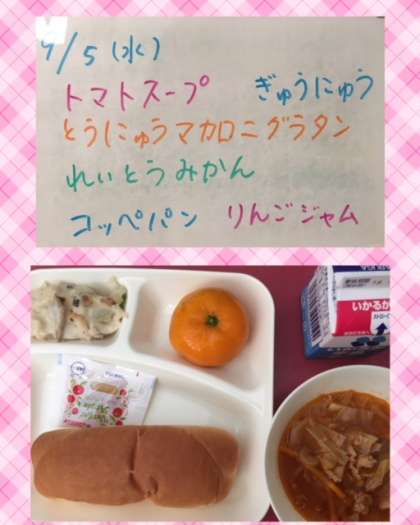 9/5(水)
トマトスープ ぎゅうにゅう
とうにゅうマカロニグラタン
れいとうみかん
コッペパン りんごジャム
いかるが